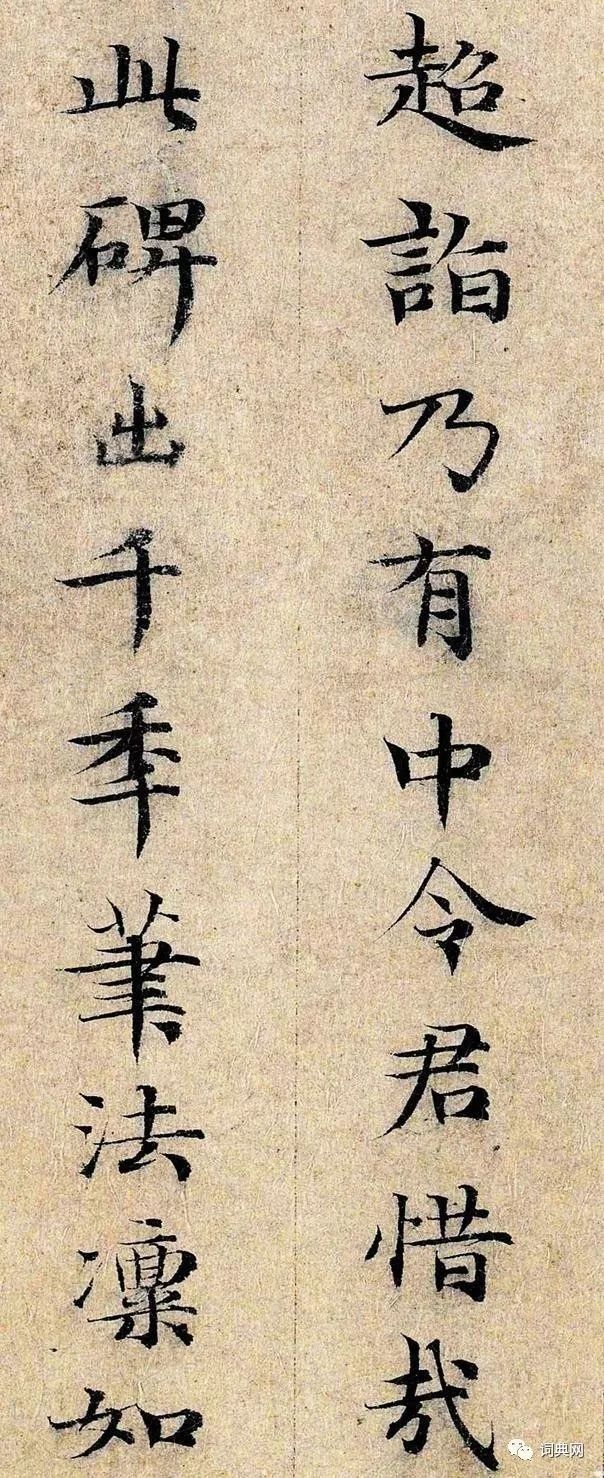 超詣乃有中令君惜哉
此碑出千季筆法凜如
词典网